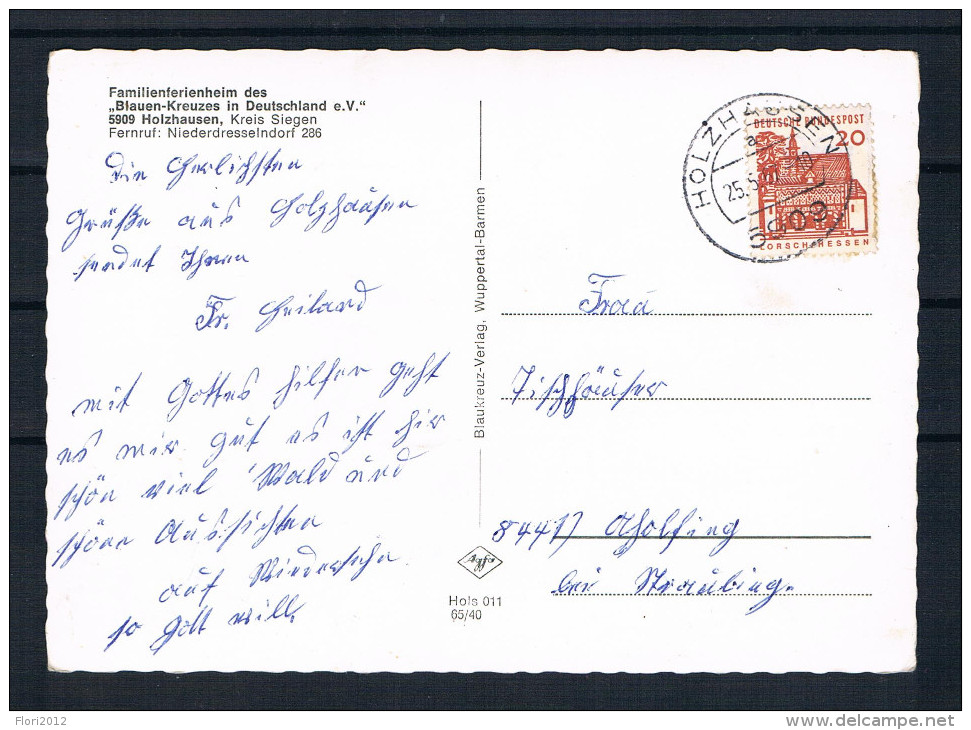 Familienferienheim des
„Blauen-Kreuzes in Deutschland e.V."
5909 Holzhausen, Kreis Siegen
Fernruf: Niederdresselndorf 286
Die Herlichsten
Grüße aus Holzhausen
sendet Ihnen
Fr. Heiland
mit Gottes hilfen geht
es mir gut es ist hir
schön viel Wald und
schöne Aussichten
auf Wiedersehn
so Gott will.
Blaukreuz-Verlag, Wuppertal-Barmen
Agfa
Hols 011
65/40
HOLZHAUSEN
a
25.5.
5909
DEUTSCHE BUNDESPOST
20
LORSCH/HESSEN
Frau
Tischhäuser
8441
bei Straubing.
Flori2012
delcampe.net